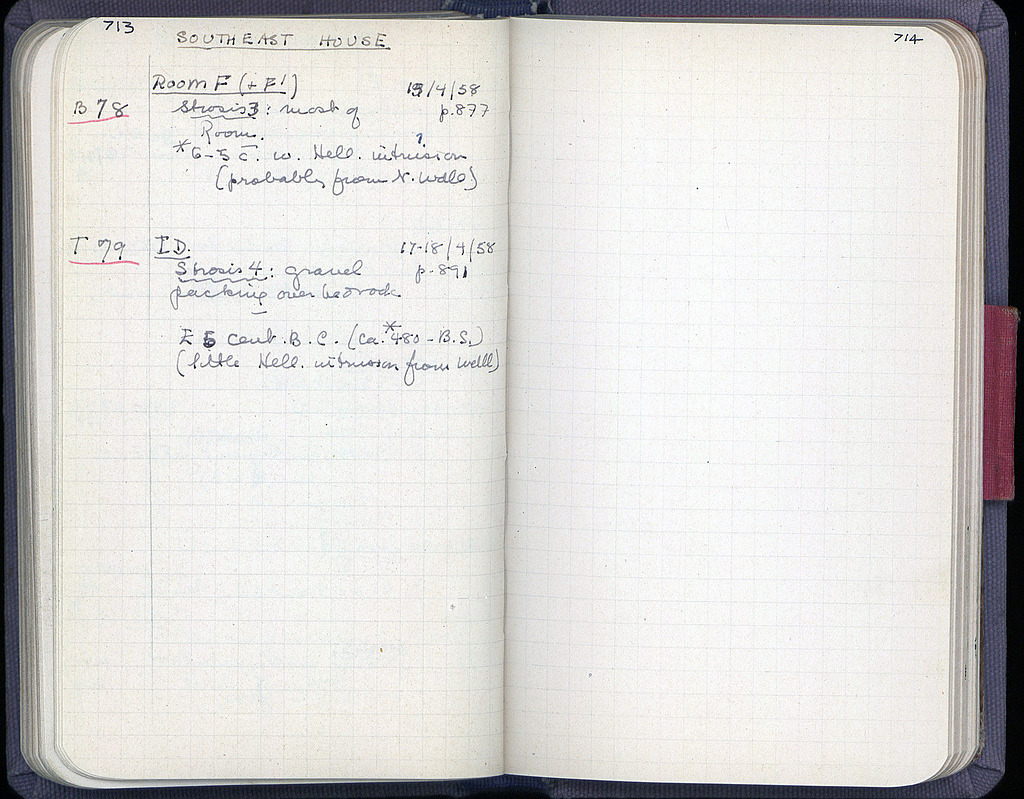 713
SOUTHEAST HOUSE
Room F (+ F') 18/4/58
B 78 Strosis 3: most of p.877
Room.
?
*6-5 c. w. Hell. intrusion
(probably from N. Wall)
T 79 ID. 17-18/4/58
Strosis 4: gravel p.891
packing over bedrock
E 5 cent. B.C. (ca.*480 - B.S.)
(little Hell. intrusion from Well)
714